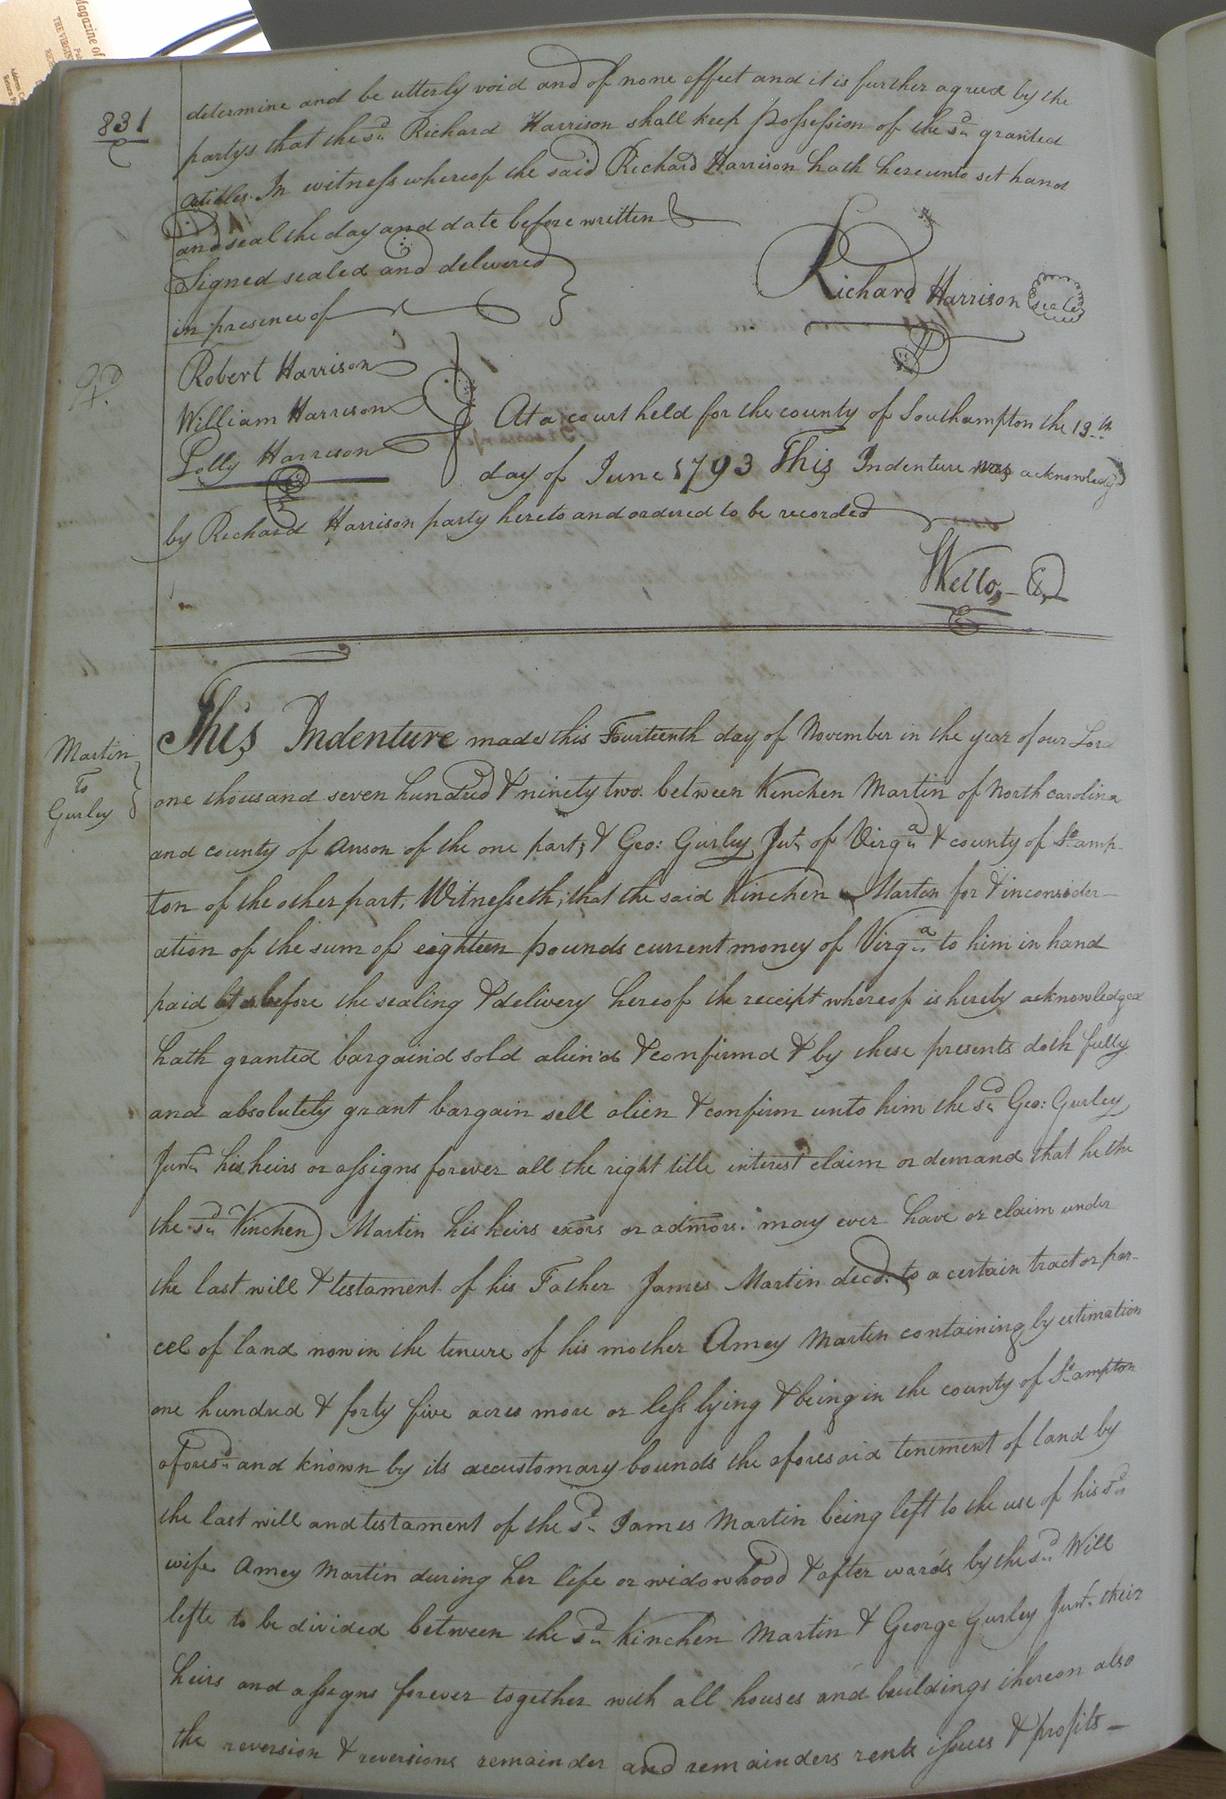 Magazine of
THE VIRGIN
831
determine and be utterly void and of none effect and it is further agreed by the
partys that the sd. Richard Harrison shall keep possession of the sd. granted
articles. In witness whereof the said Richard Harrison hath hereunto set hand
and seal the day and date before written
Signed sealed and delivered
in presence of
Richard Harrison seal
Robert Harrison
William Harrison
Polly Harrison
At a court held for the county of Southampton the 13th
day of June 1793 This Indenture was acknowledg'd
by Richard Harrison party hereto and ordered to be recorded
Martin
To
Gurley
This Indenture made this Fourteenth day of November in the year of our Lord
one thousand seven hundred & ninety two. between Kinchen Martin of North carolina
and county of Anson of the one part, & Geo: Gurley Jur. of Virga. & county of So.amp-
ton of the other part, Witnesseth, that the said Kinchen Martin for & in consider-
ation of the sum of eighteen pounds current money of Virga. to him in hand
paid before the sealing & delivery hereof the receipt whereof is hereby acknowledged
hath granted bargain'd sold alien'd & confirmd & by these presents doth fully
and absolutely grant bargain sell alien & confirm unto him the sd. Geo: Gurley
Junr. his heirs or assigns forever all the right title interest claim or demand that he the
the sd. Kinchen Martin his heirs exors or admors. may ever have or claim under
the last will & testament of his Father James Martin decd. to a certain tract or par-
cel of land now in the tenure of his mother Amey Martin containing by estimation
one hundred & forty five acres more or less lying & being in the county of So.ampton
aforesd. and known by its accustomary bounds the aforesaid teniment of land by
the last will and testament of the sd. James Martin being left to the use of his sd.
wife Amey Martin during her life or widowhood & after wards by the sd. Will
lefte to be divided between the sd. Kinchen Martin & George Gurley Junr. their
heirs and assigns forever together with all houses and buildings thereon also
the reversion & reversions remainder and remainders rents issues & profits—